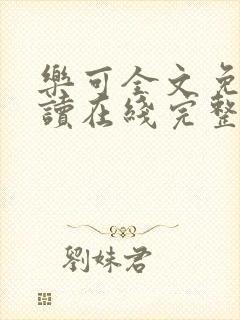 樂可全文免
讀在綫完整
劉妹君